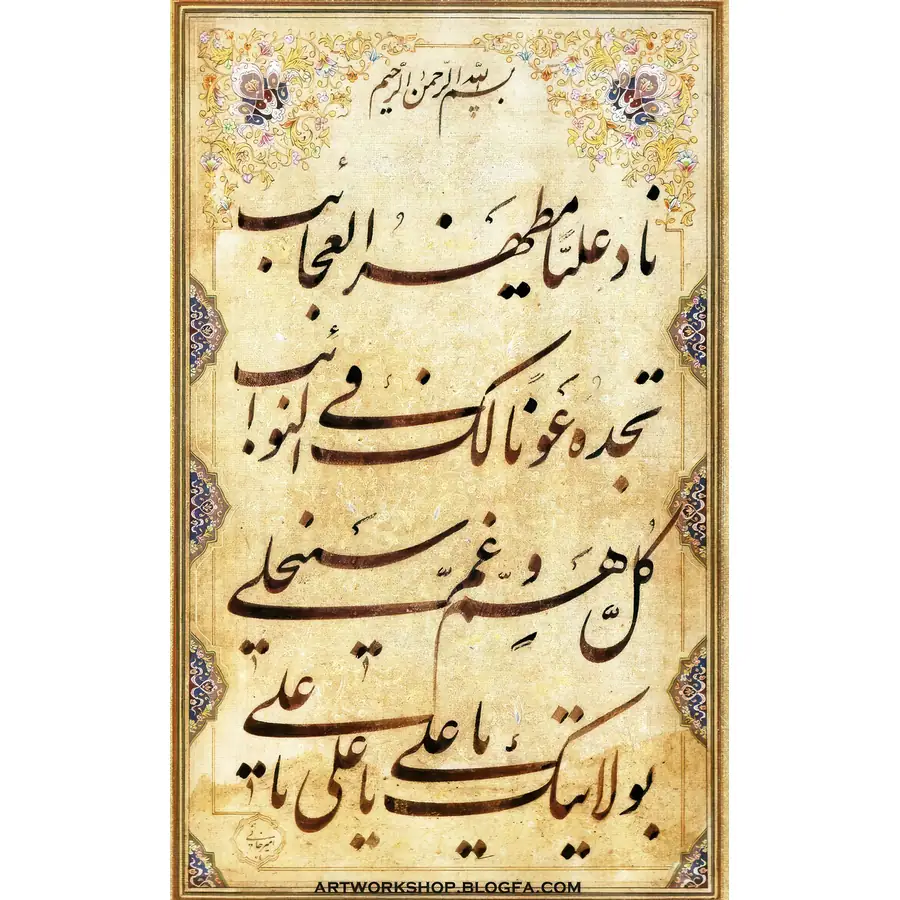 بسم الله الرحمن الرحیم
ناد علیًا مظهر العجائب
تجده عونًا لک فی النوائب
کل همٍّ و غمّ سینجلی
بولایتک یا علی یا علی یا علی
ARTWORKSHOP.BLOGFA.COM